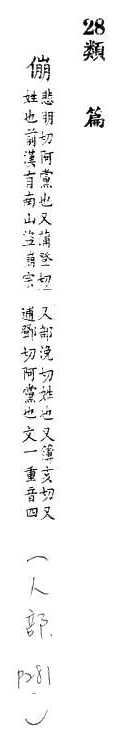 28 類 篇
傰
悲朋切阿黨也又蒲登切
姓也前漢有南山盜傰宗
又部浼切姓也又簿亥切又
逋鄧切阿黨也文一重音四
(人部 P281)